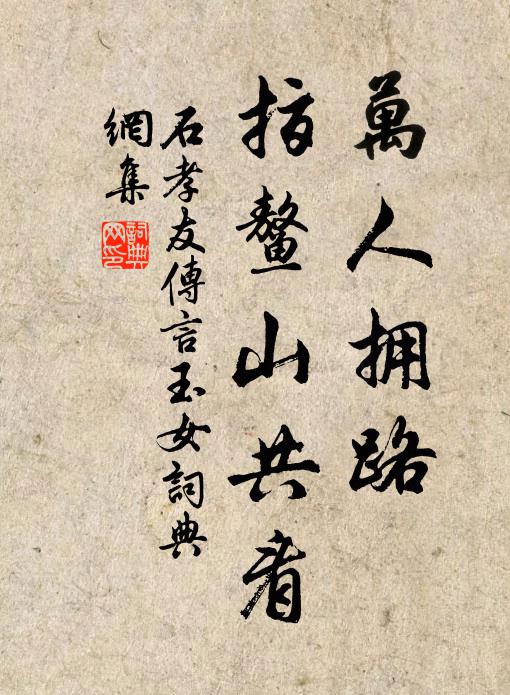 萬人拥路
指鳌山共看
石孝友傳言玉女詞典
網集
詞典网印